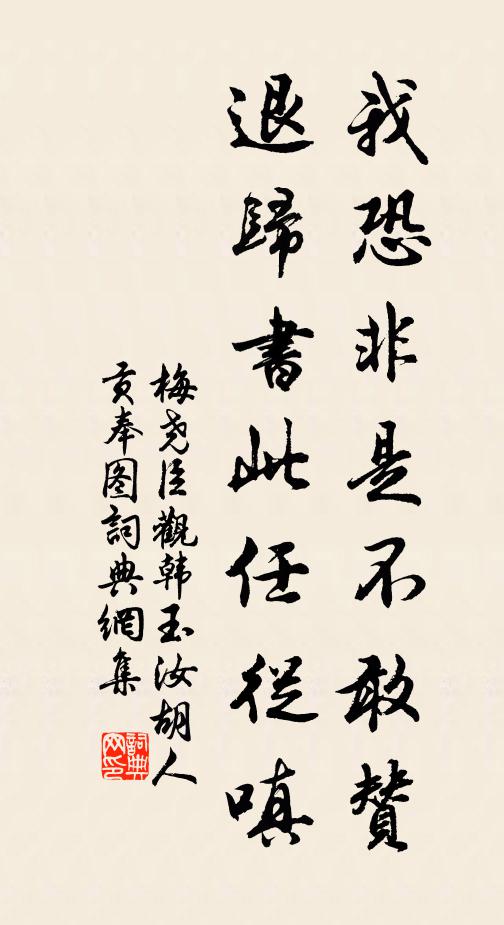 我恐非是不敢贊
退歸書此任從嗔
梅堯臣觀韩玉汝胡人
貢奉图詞典網集
詞典網印